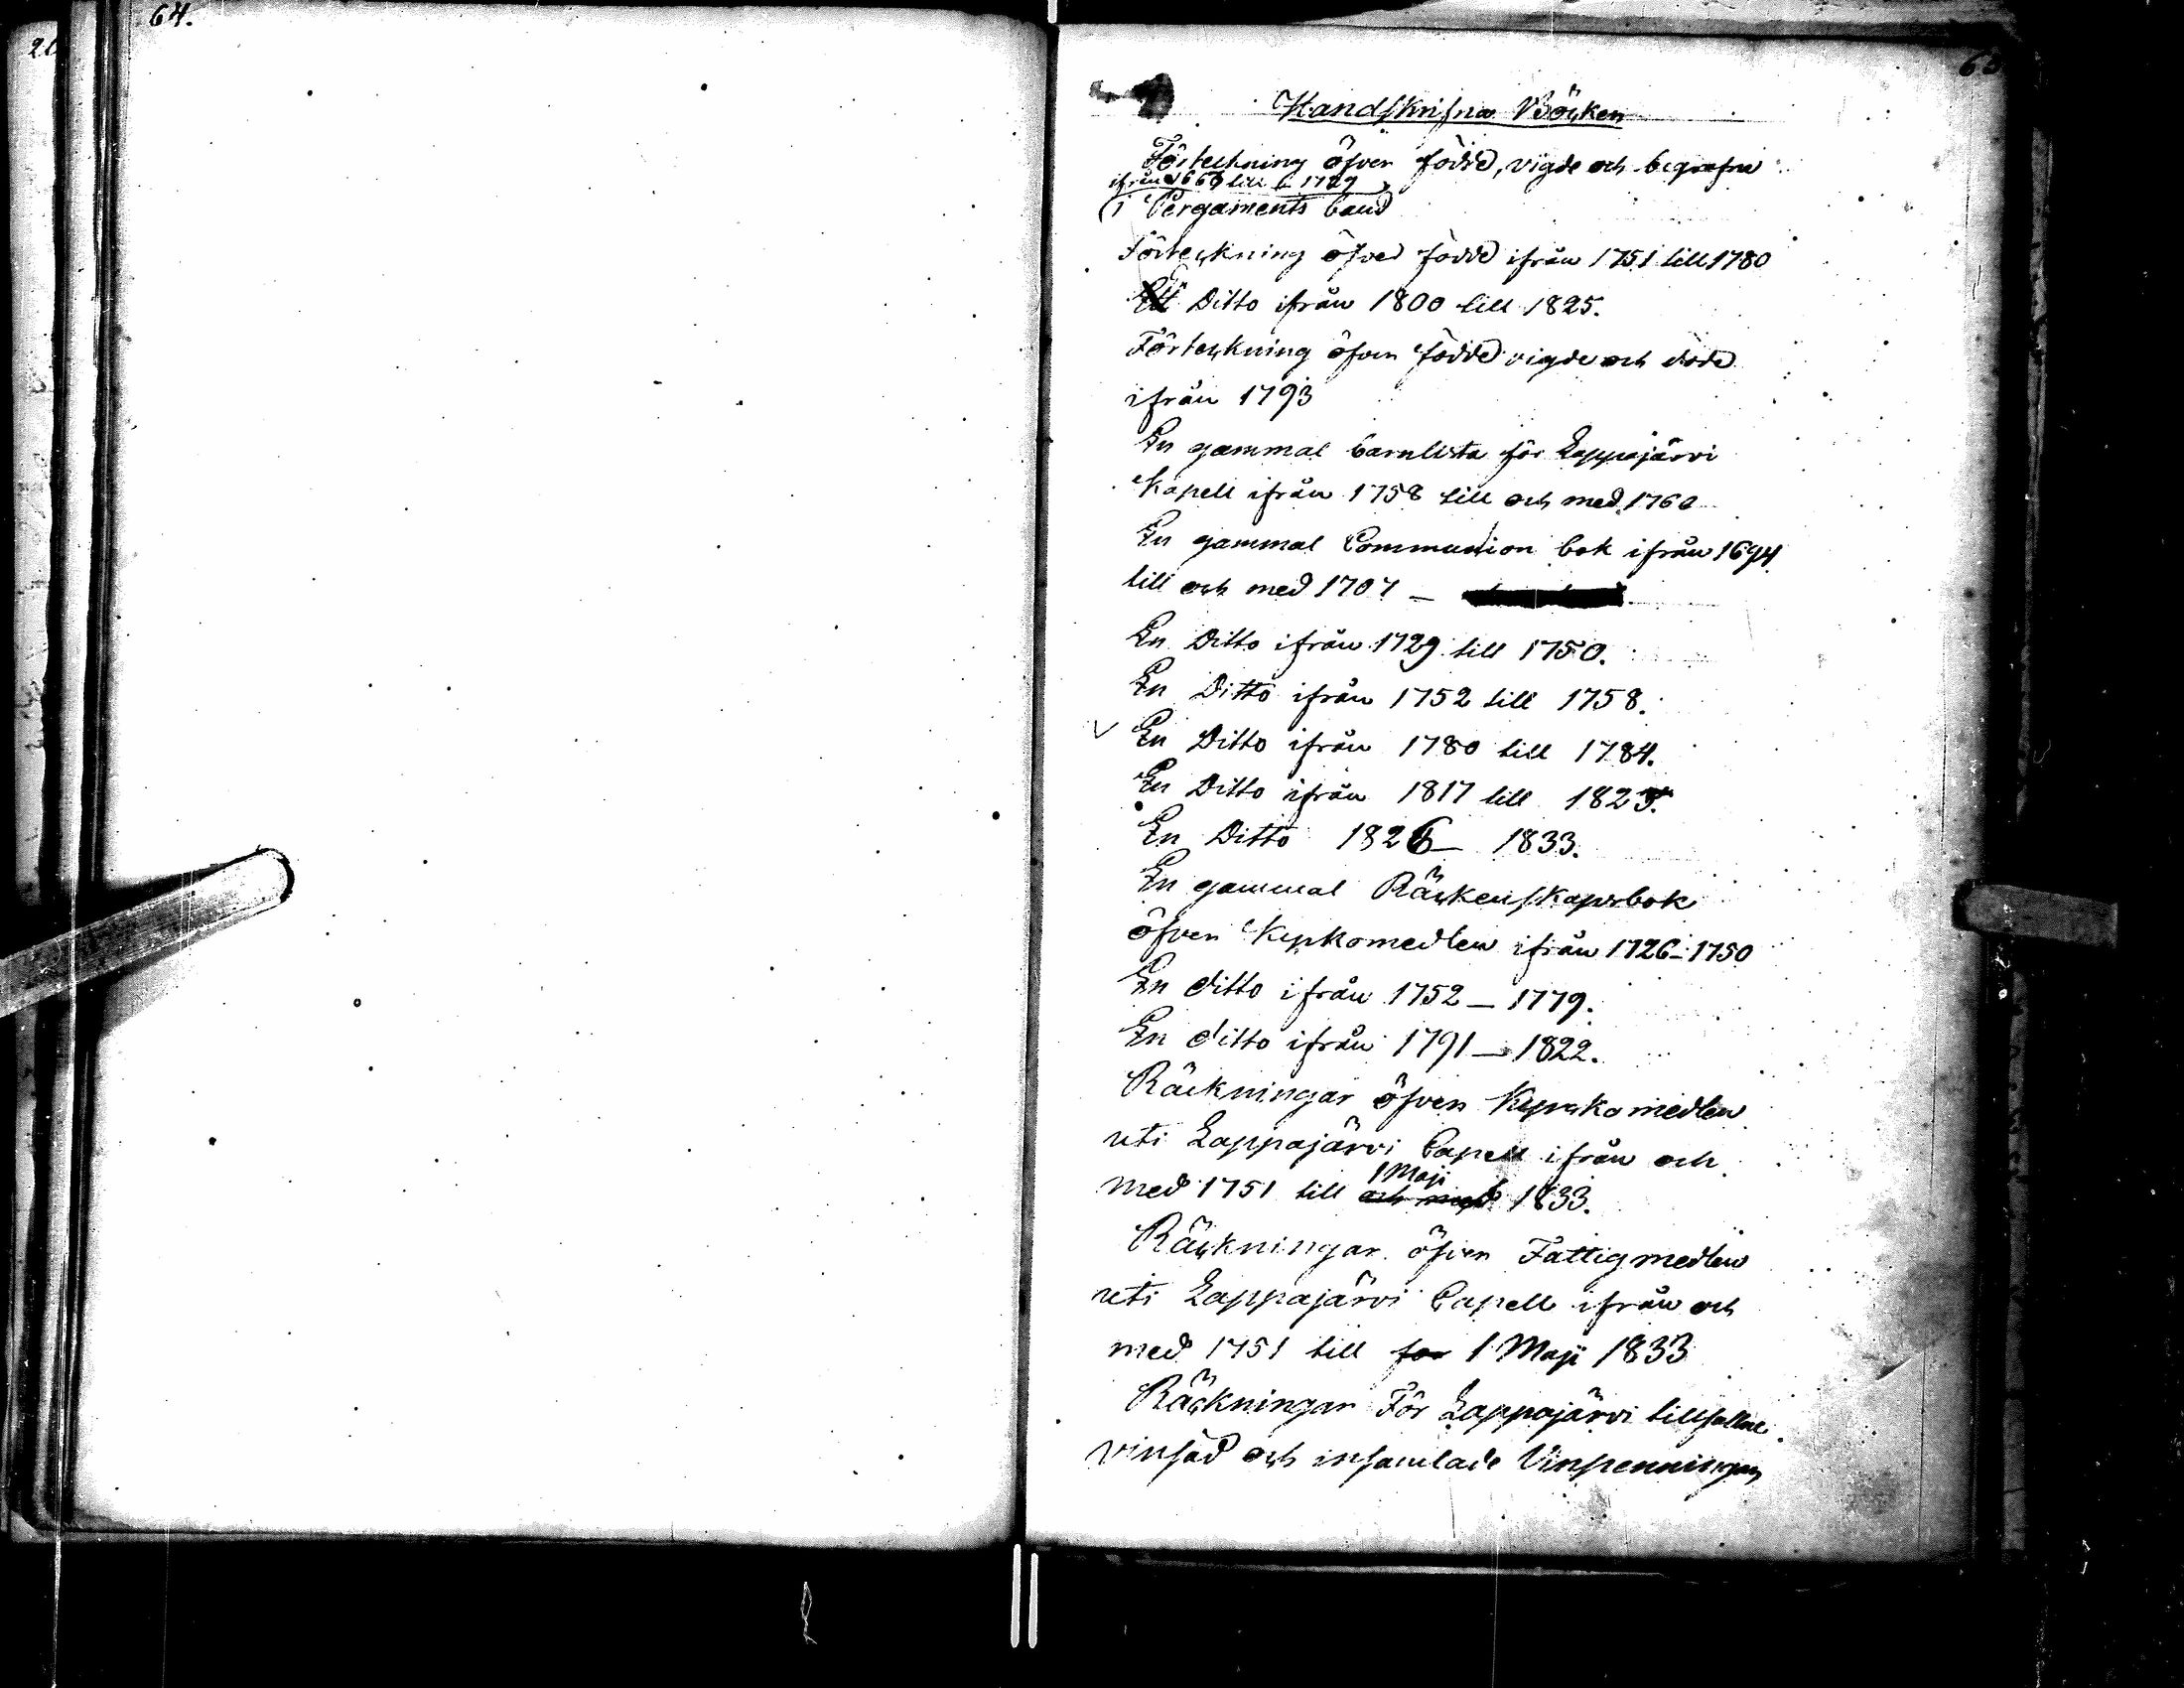 64.
Handskrifna Böcker
Förteckning öfver födde, vigde och begrafne
ifrån till 1729
i Pergaments band
Förteckning öfver födde ifrån 1751 till 1780
Ditto ifrån 1800 till 1825.
Förteckning öfver födde vigde och döde
ifrån 1793
En gammal barnlista för Lappajärvi
Kapell ifrån 1758 till och med 1760
En gammal Communion bok ifrån 1694
till och med 1707 —
En Ditto ifrån 1729 till 1750.
En Ditto ifrån 1752 till 1758.
En Ditto ifrån 1780 till 1784.
En Ditto ifrån 1817 till 1825.
En Ditto 1826 — 1833.
En gammal Räckenskapsbok
öfver Kyrkomedlen ifrån 1726–1750
En ditto ifrån 1752 — 1779.
En ditto ifrån 1791 — 1822.
Räckningar öfver Kyrckomedlen
uti Lappajärvi Capell ifrån och
1 Maji
med 1751 till och med 1833.
Räckningar öfver Fattigmedlen
uti Lappajärvi Capell ifrån och
med 1751 till 1 Maji 1833
Räckningar För Lappajärvi tillfallne
vinsäd och insamlade Vinpenningar